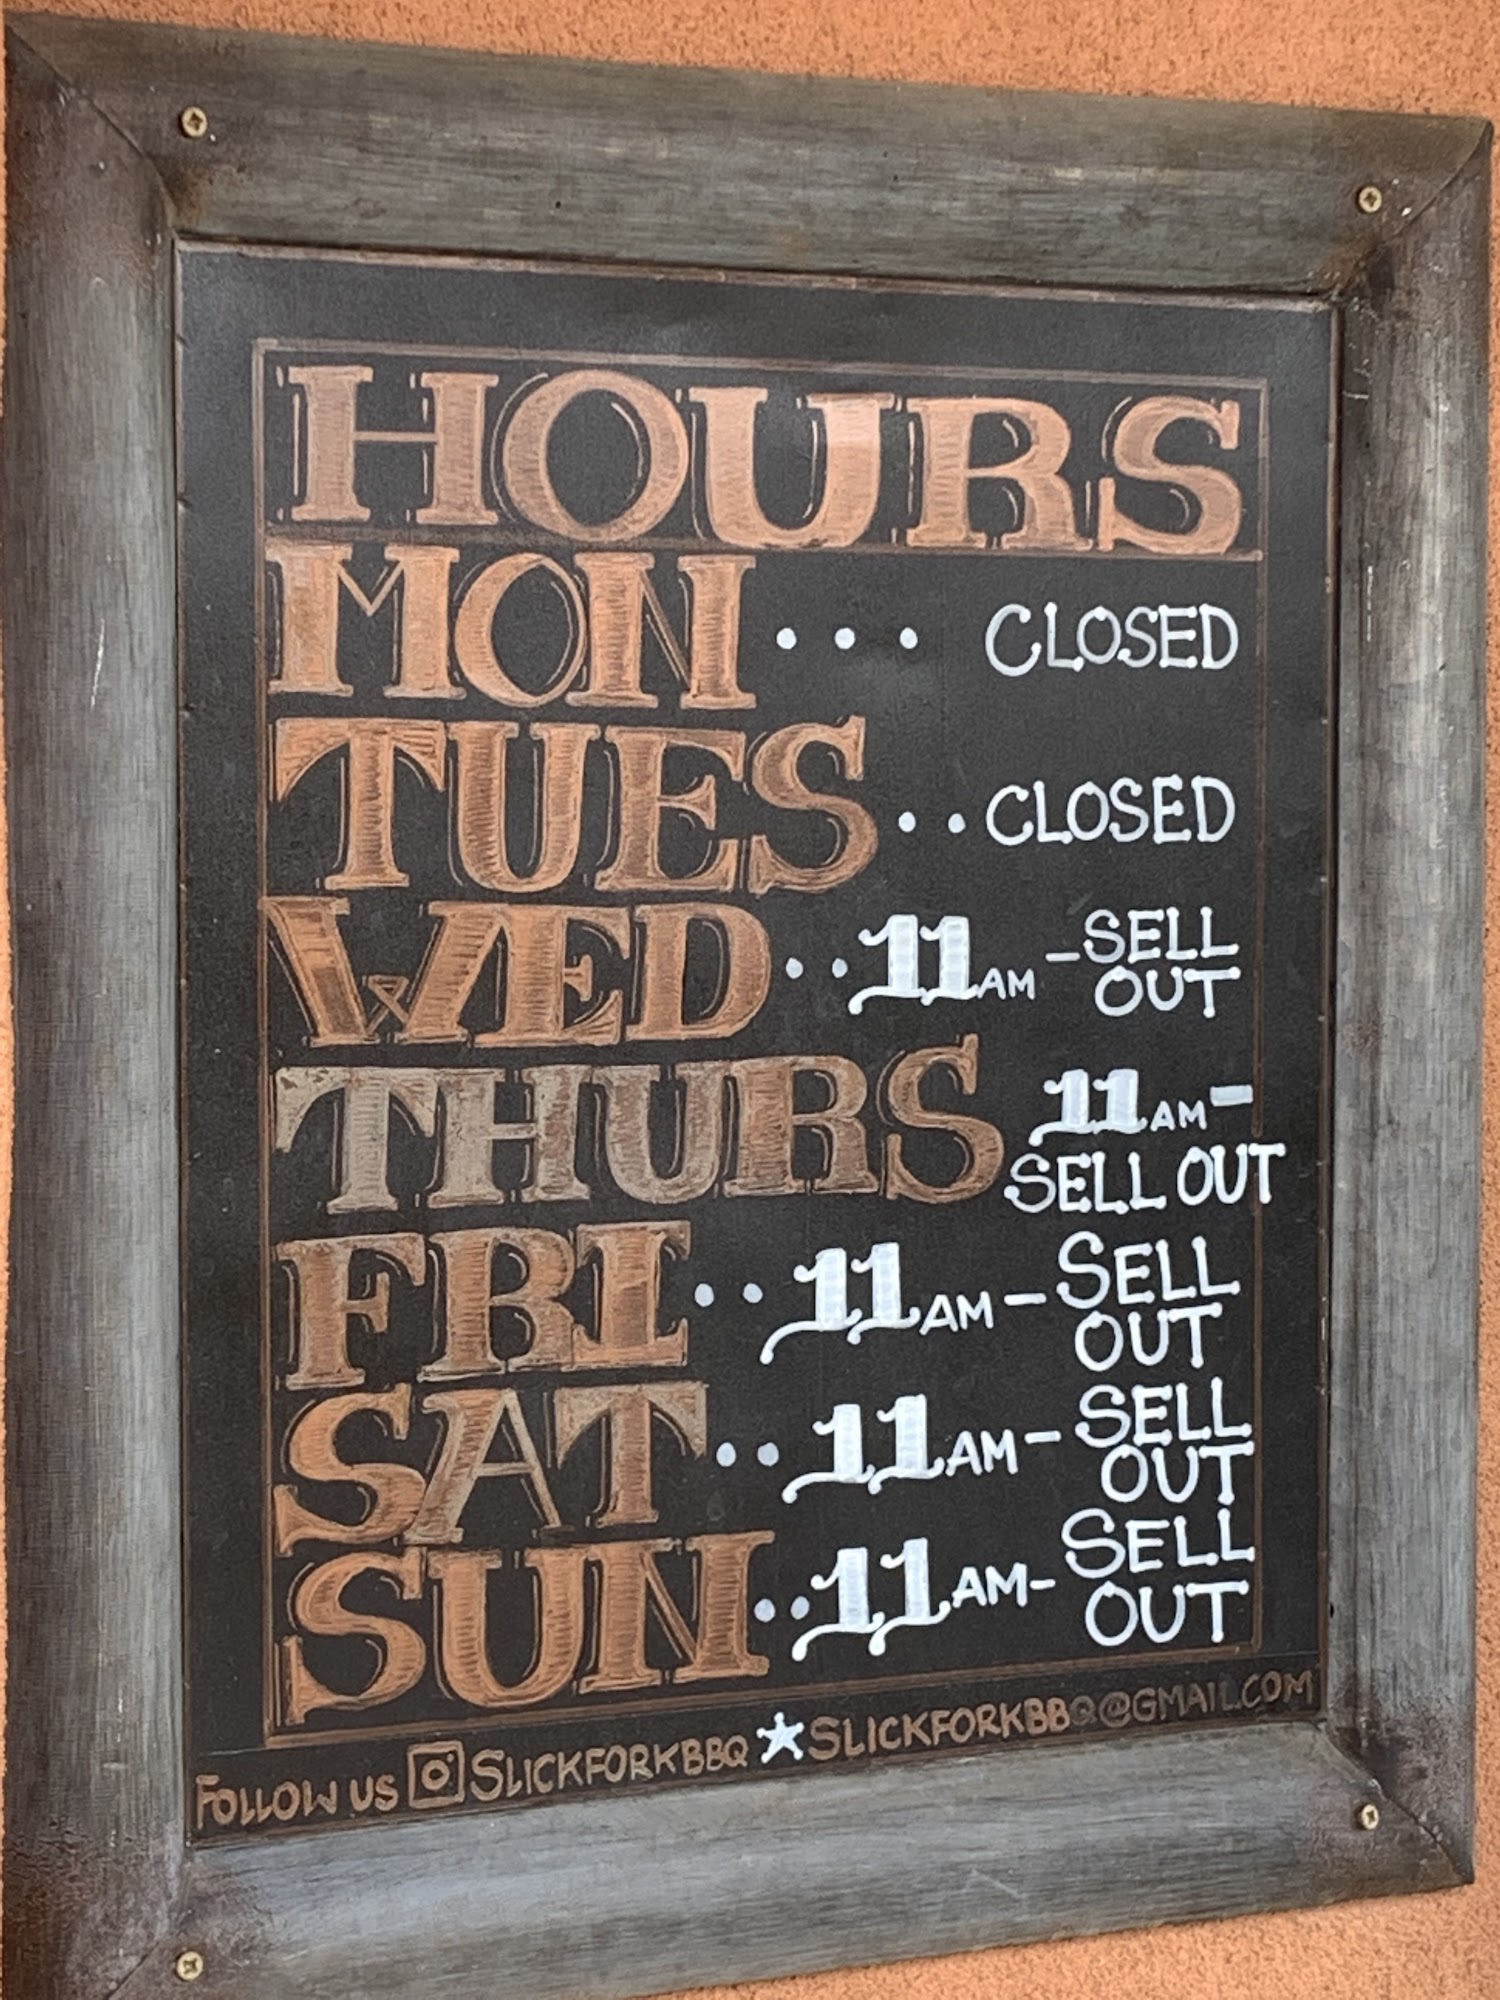 HOURS
MON... CLOSED
TUES..CLOSED
WED..11AM-SELL
OUT
THURS 11AM-
SELL OUT
FRI..11AM-SELL
OUT
SAT..11AM-SELL
OUT
SUN..11AM-SELL
OUT
FOLLOW US SLICKFORKBBQ SLICKFORKBBQ@GMAIL.COM